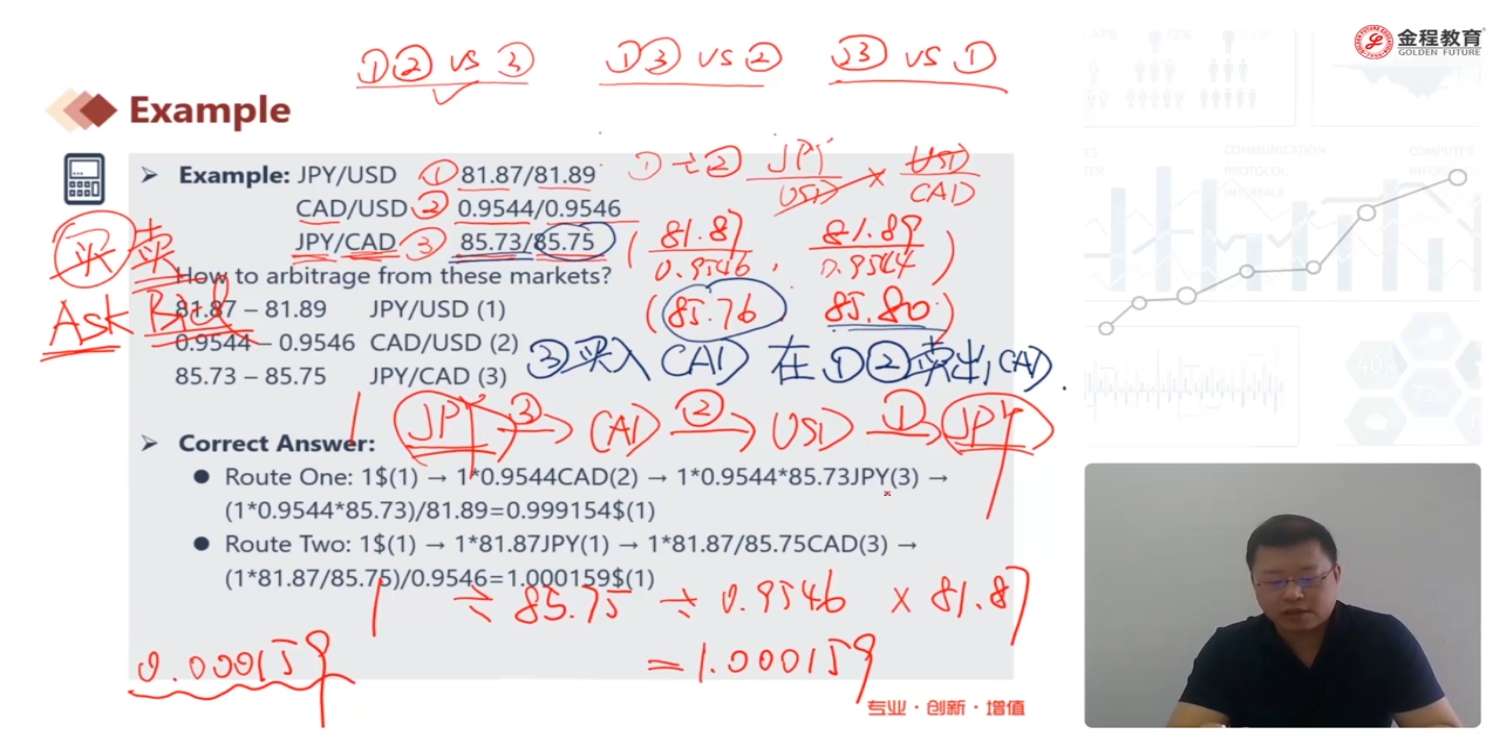 ①② vs ③ ①③ vs ② ②③ vs ①
金程教育
GOLDEN FUTURE
Example
➤ Example: JPY/USD ① 81.87/81.89
CAD/USD ② 0.9544/0.9546
JPY/CAD ③ 85.73/85.75
How to arbitrage from these markets?
81.87 – 81.89 JPY/USD (1)
0.9544 – 0.9546 CAD/USD (2)
85.73 – 85.75 JPY/CAD (3)
买 卖
Ask Bid
① ÷ ② JPY/USD × USD/CAD
( 81.87/0.9546 , 81.89/0.9544 )
( 85.76 85.80 )
③买入 CAD 在 ①②卖出 CAD.
1 JPY ③→ CAD ②→ USD ①→ JPY
➤ Correct Answer:
● Route One: 1$(1) → 1*0.9544CAD(2) → 1*0.9544*85.73JPY(3) →
(1*0.9544*85.73)/81.89=0.999154$(1)
● Route Two: 1$(1) → 1*81.87JPY(1) → 1*81.87/85.75CAD(3) →
(1*81.87/85.75)/0.9546=1.000159$(1)
1 ÷ 85.75 ÷ 0.9546 × 81.87
= 1.000159
0.000159
专业·创新·增值